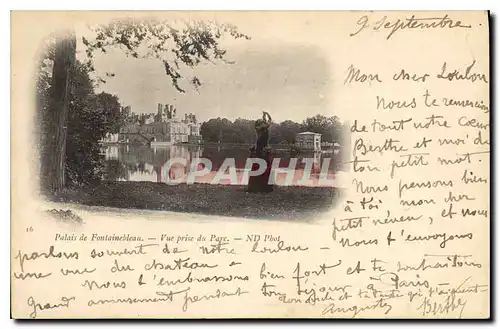 9 Septembre
Mon cher Loulon
Nous te remercions
de tout notre Cœur
Berthe et moi de
ton petit mot.
Nous pensons bien
à toi mon cher
petit neveu, et nous
nous envoyons
CPARHAMA
16
Palais de Fontainebleau. — Vue prise du Parc. — ND Phot
parlons souvent de notre Loulon —
une vue du château —
Nous t'embrassons bien fort et te souhaitons
grand amusement pendant ton séjour à Paris,
ton oncle et ta tante qui t'aiment
Auguste Berthe